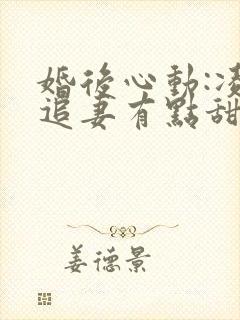 婚後心動:凌
追妻有點甜
姜德景